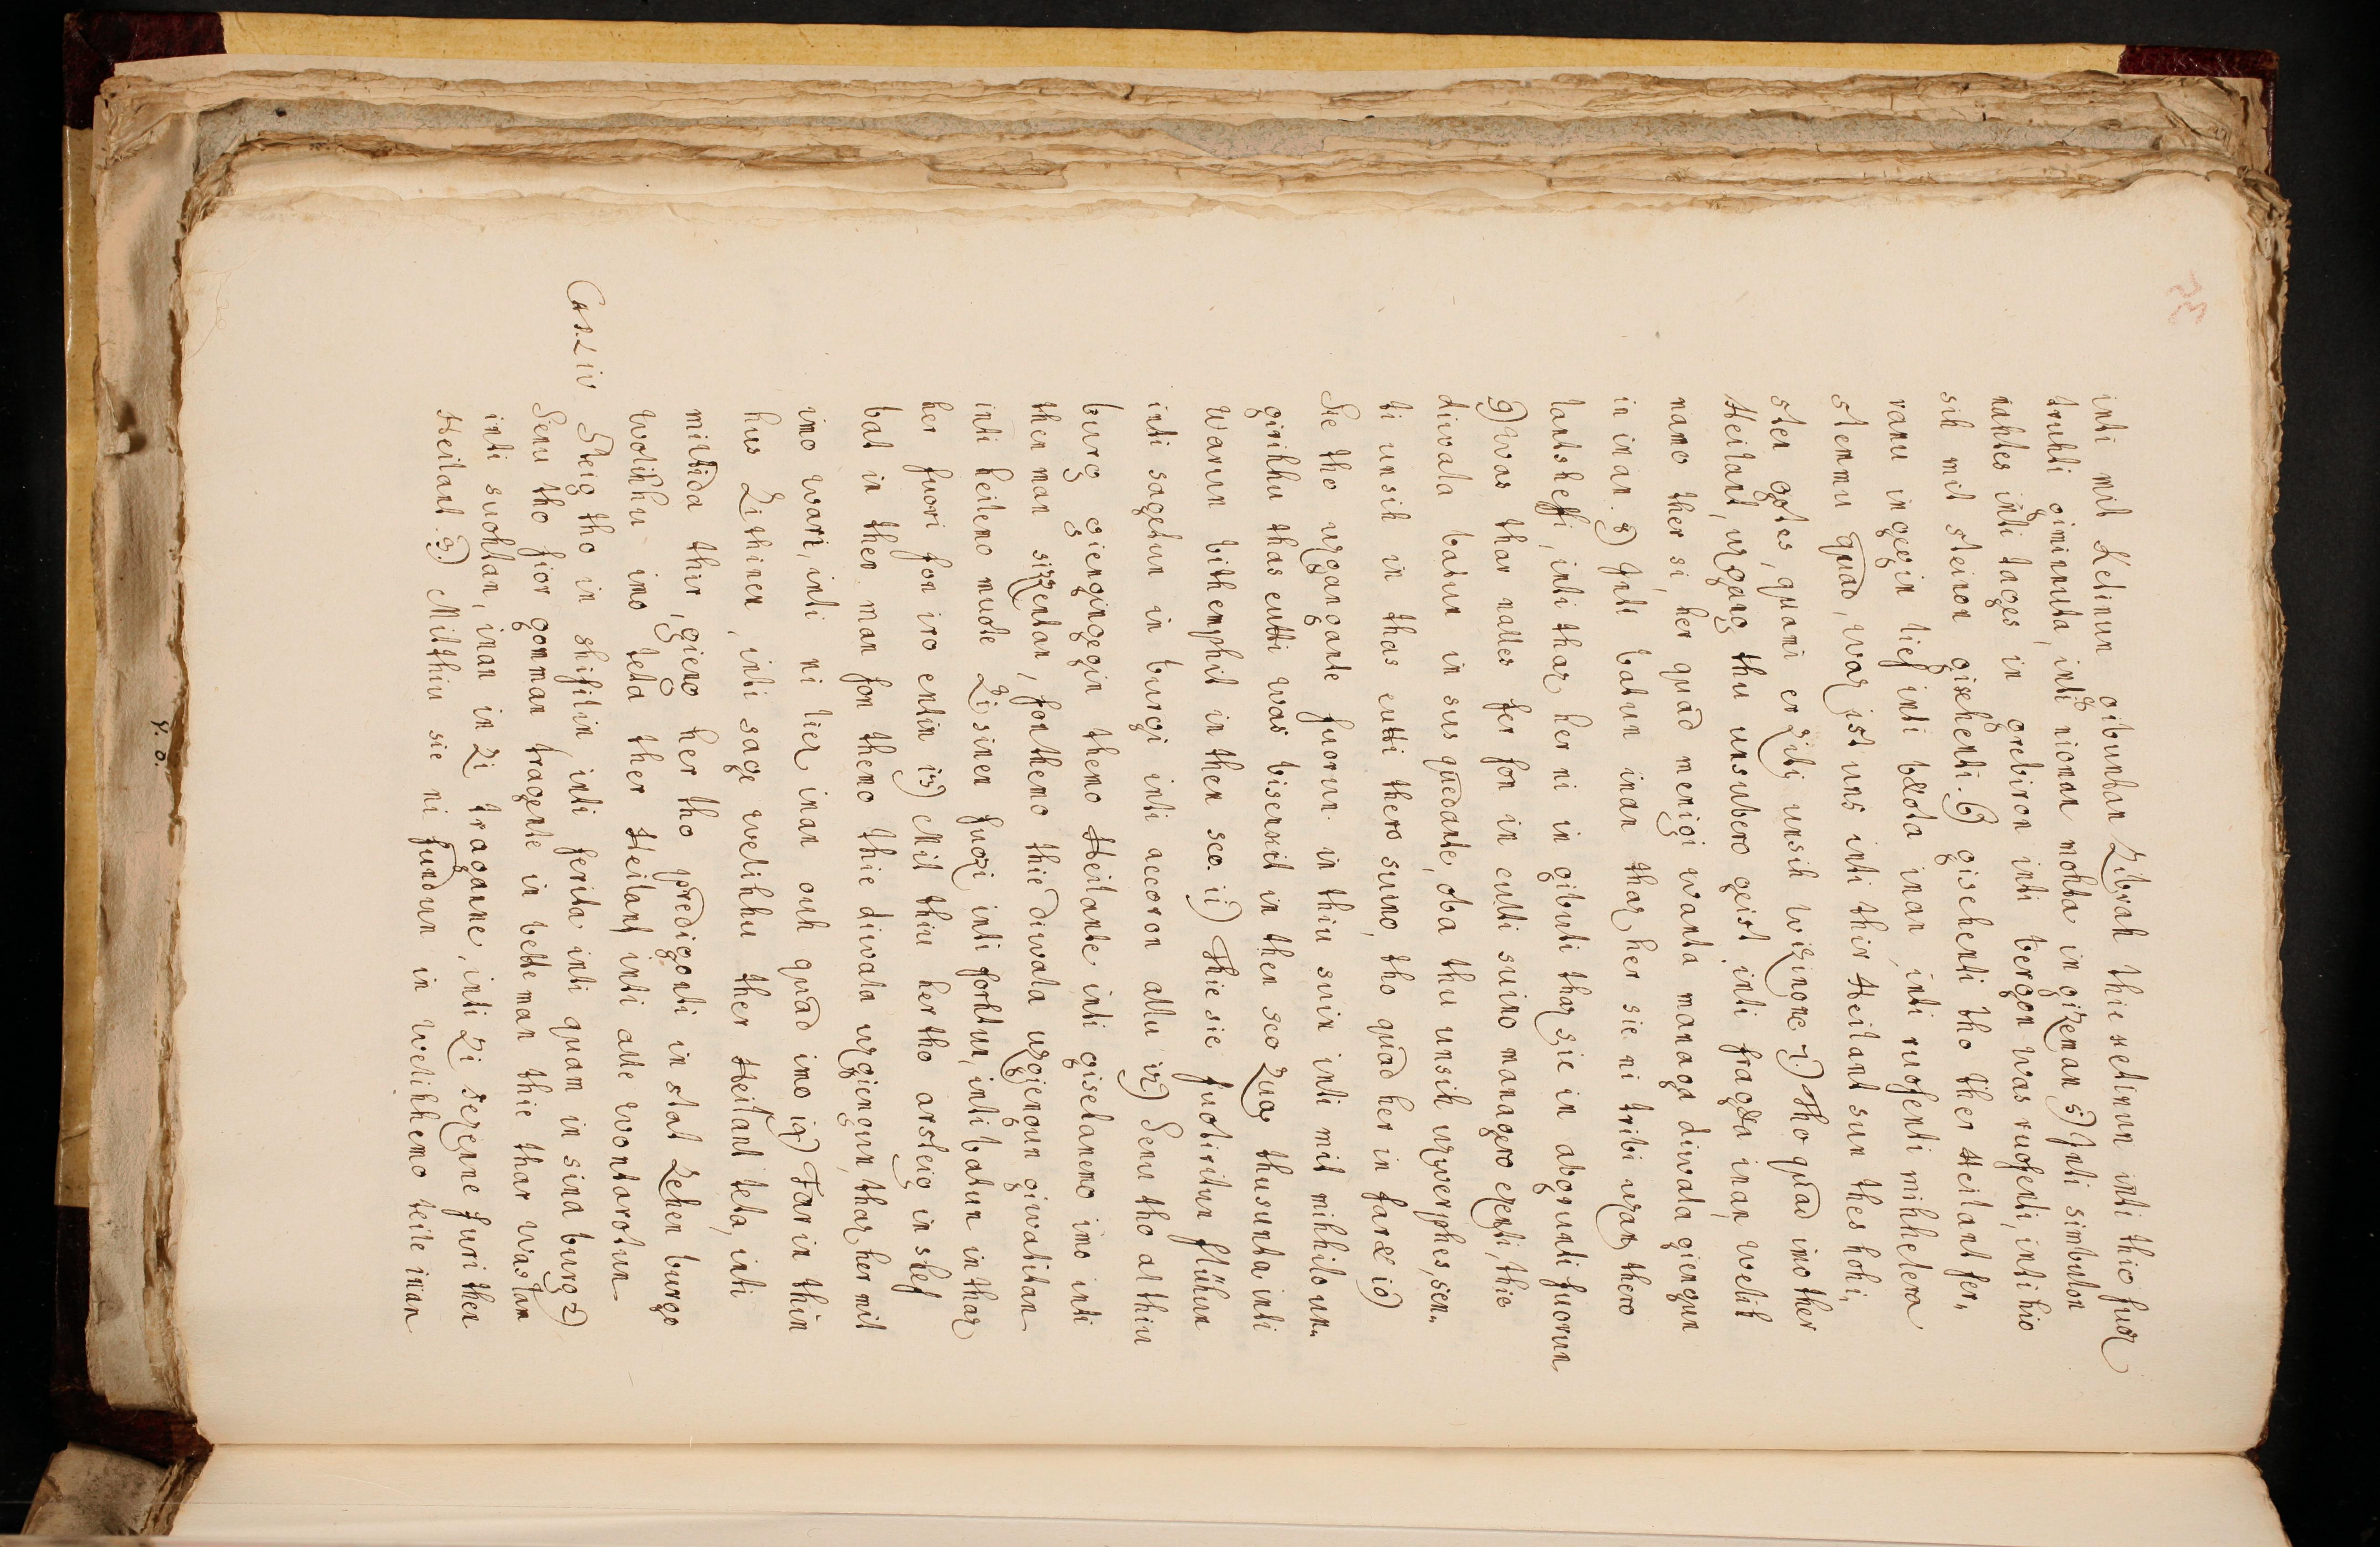 75
inti mit Ketinun gibuntan Zibrah thie ketinun inti thio fuoz
truhti giminnita, inti nioman mohta in gizeman 5) Inti simbulon
nahtes inti tages in grebiron inti bergon was ruofenti, inti hio
sih mit steinon gisehenti. 6) gisehenti tho ther Heilant fer,
ranu ingegin lief inti b&ota inan, inti ruofenti mihhelera
stemmu quad, waz ist uns inti thir Heilant sun thes hohi,
sten gotes, quami er ziti unsih wizinone 7.) Tho quad imo ther
Heilant, uzgang thu unsubero geist, inti frag&a inan, welih
namo ther si, her quad menigi wanta managa diuvala giengun
in inan. 8) Inti batun inan thaz her sie ni tribi uzan thero
lantsheffi, inti thaz her ni in gibuti thaz sie in abgrunti fuorun
9) was thar nalles fer fon in cutti suino managero ezenti, thie
diuvala batun in sus quedante, oba thu unsih uzwerphes, sen,,
ti unsih in thas cutti thero suino, tho quad her in far& 10)
Sie tho uzgangante fuorun in thiu suin inti mit mihhilo un,,
girihhu thas cutti was bisenkit in then seo zuoz thusunta inti
warun bithemphit in then seo. 11) Thie sie fuotiritun flühun
inti sagetun in burgi inti accoron allu 12) Senu tho al thiu
burg giengingegin themo Heilante inti gisehanemo imo inti
then man sizzentan, fon themo thie diuvala uzgiengun giwatitan
inti heilemo muote Zi sinen fuozi inti forhtun, inti batun in thaz
her fuori fon iro entin 13) Mit thiu her tho arsteig in skef
bat in ther man fon themo thie diuvala uzgiengun, thaz her mit
imo wari, inti ni liez inan ouh quad imo 14) Far in thin
hus Zi thinen, inti sage welihhu ther Heilant teta, inti
miltida thir, gieng her tho predigonti in stat Zehen burgo
wolihhu imo teta ther Heilant inti alle wontarotun
Cap. LIV Steig tho in skifilin, inti ferita inti quam in sina burg 2)
Senu tho fior gomman tragente in bette man thie thar was lam
inti suohtan, inan in Zi traganne, inti Zi sezenne furi then
Heilant. 3.) Mitthiu sie ni fundun in welihhemo teile inan